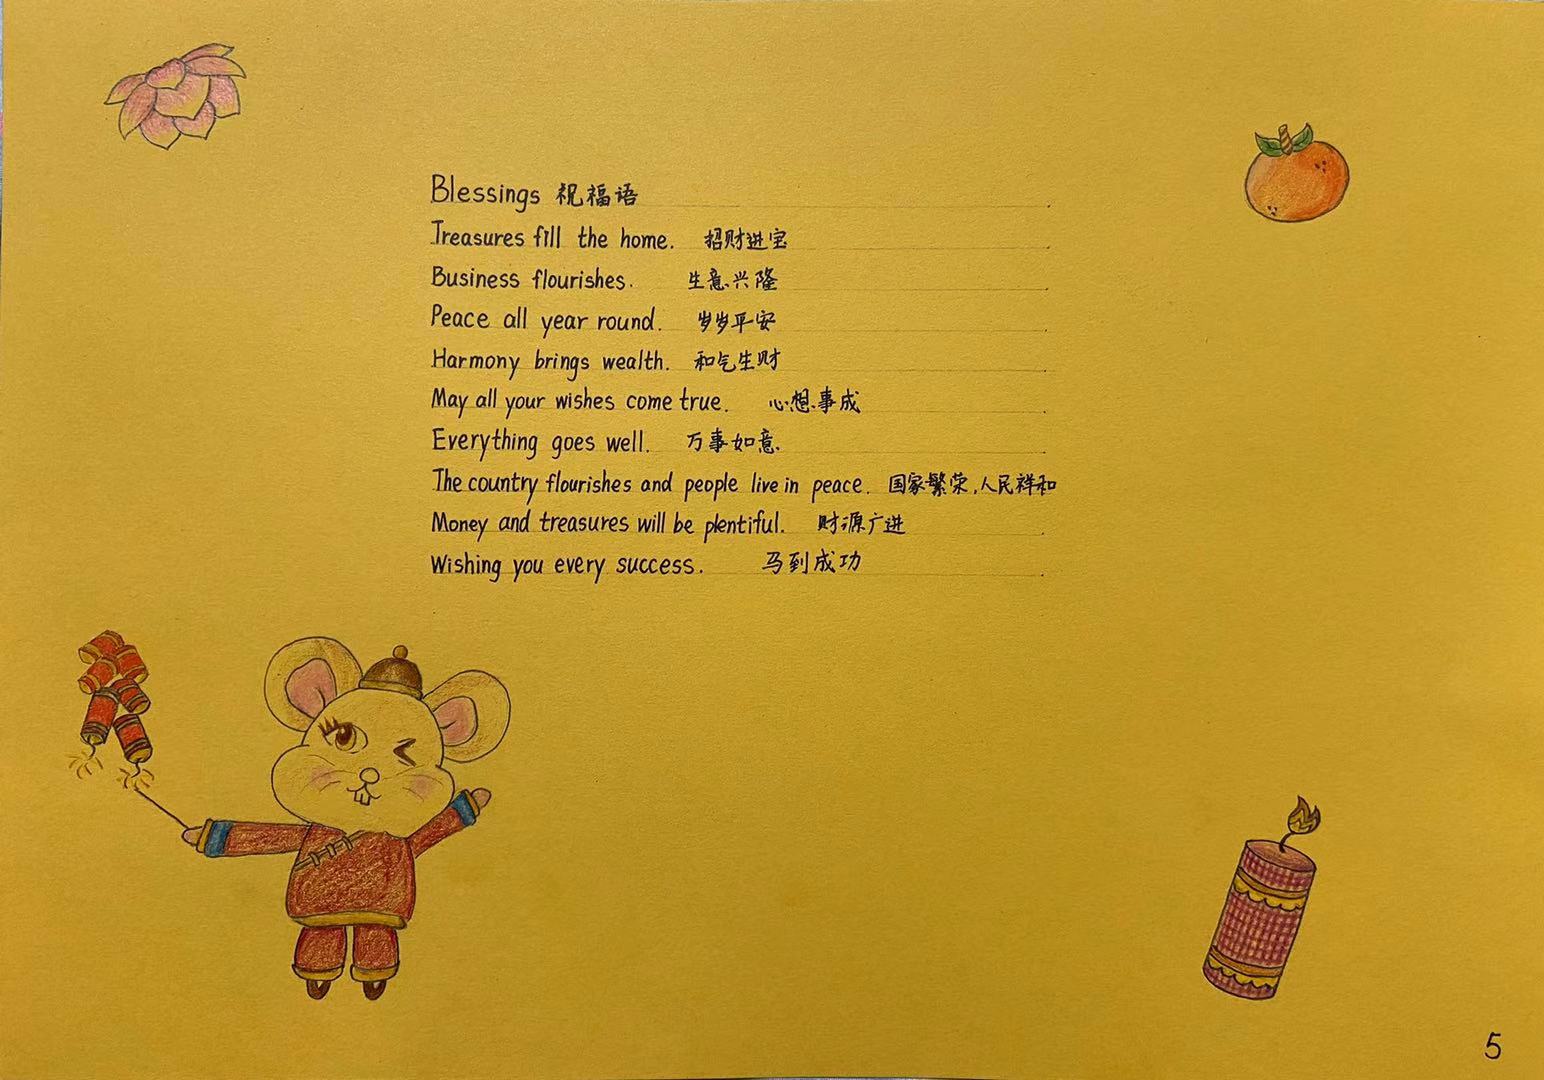 Blessings 祝福语
Treasures fill the home. 招财进宝
Business flourishes. 生意兴隆
Peace all year round. 岁岁平安
Harmony brings wealth. 和气生财
May all your wishes come true. 心想事成
Everything goes well. 万事如意
The country flourishes and people live in peace. 国家繁荣,人民祥和
Money and treasures will be plentiful. 财源广进
Wishing you every success. 马到成功
5